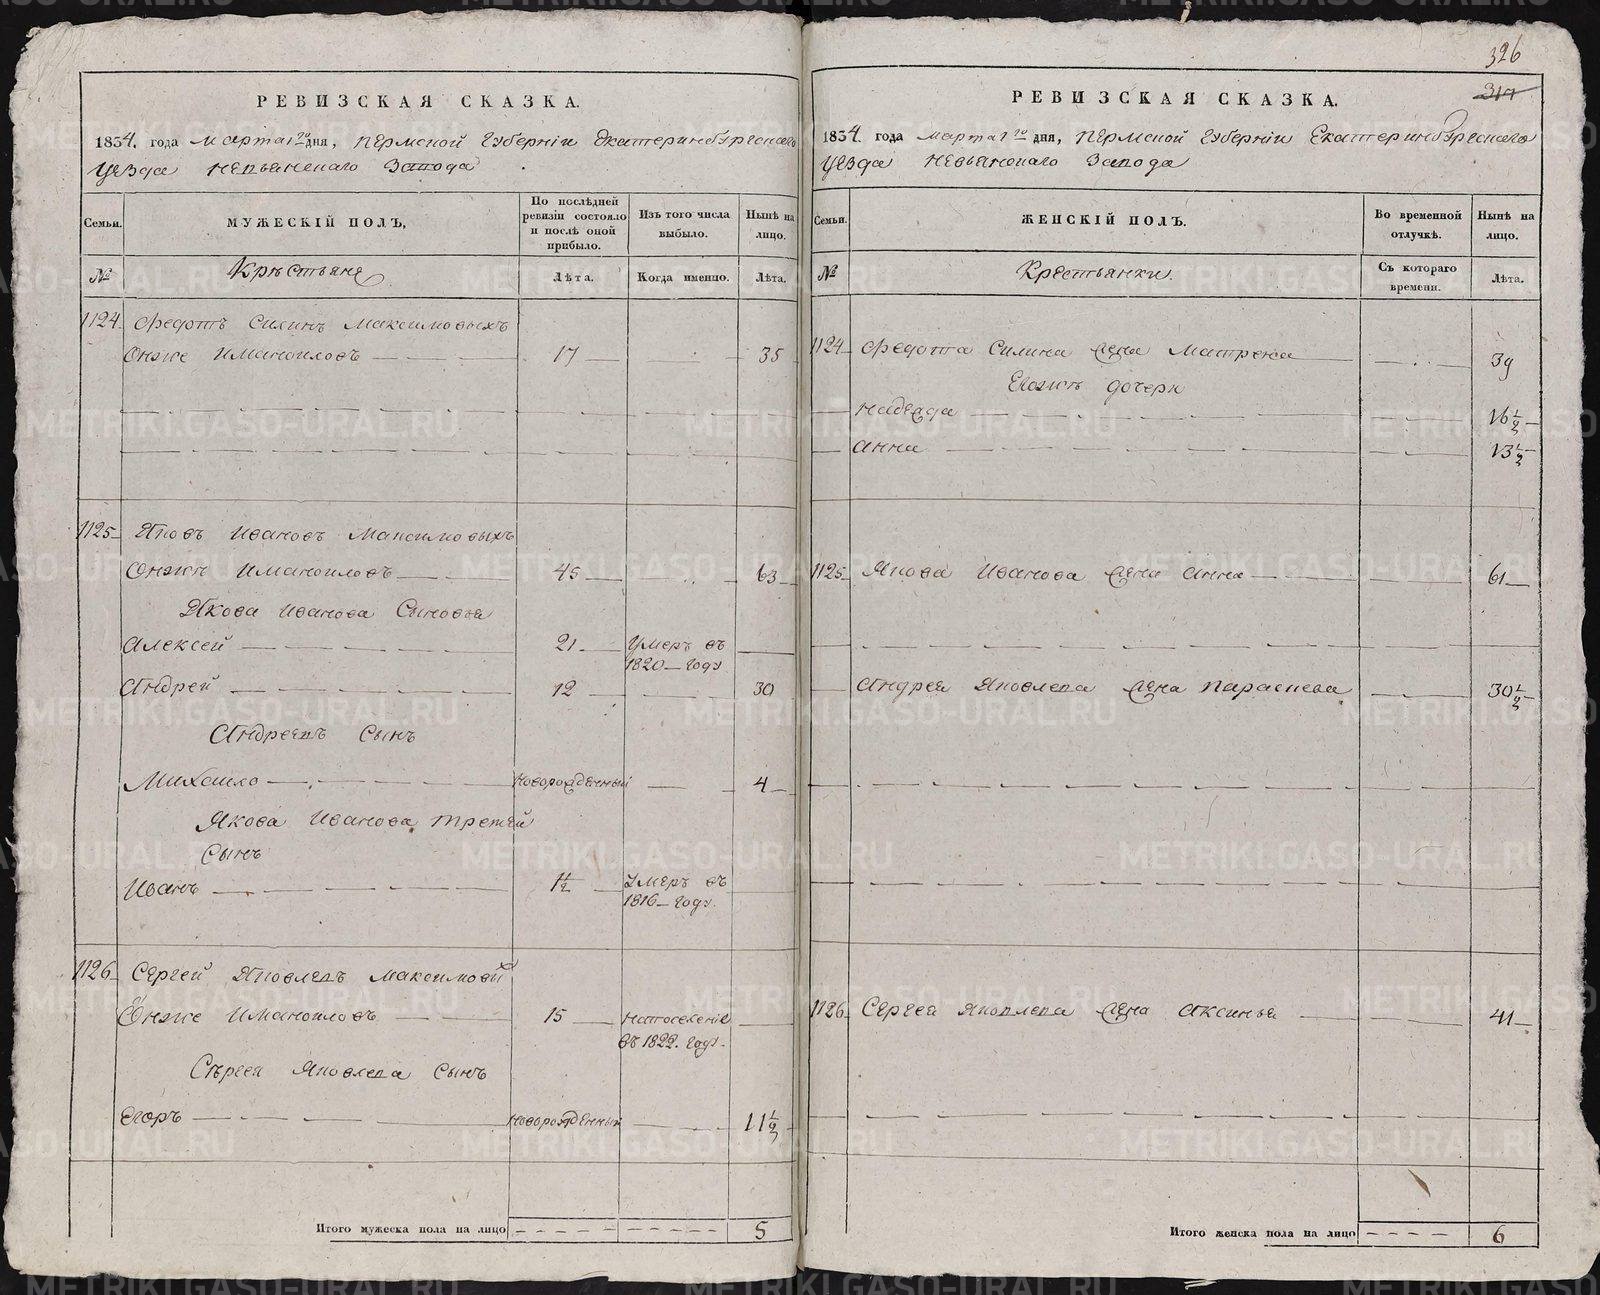 РЕВИЗСКАЯ СКАЗКА.
1834. года Марта 1го дня, Пермской Губернiи Екатеринбургскаго
Уезда Невьянскаго Завода
Семьи. МУЖЕСКIЙ ПОЛЪ, По послѣдней ревизiи состояло и послѣ оной прибыло. Изъ того числа выбыло. Нынѣ на лицо.
№ Крѣстьяне Лѣта. Когда именно. Лѣта.
1124 Федотъ Силинъ Максимовыхъ
Онже Имануиловъ 17 35
1125 Яковъ Ивановъ Максимовыхъ
Онжъ Имануиловъ 45 63
Якова Иванова Сыновья
Алексей 21 Умеръ въ 1820 Году
Андрей 12 30
Андреевъ Сынъ
Михаило Новорожденный 4
Якова Иванова третей
Сынъ
Иванъ 1½ Умеръ въ 1816 Году.
1126 Сергей Яковлевъ Максимовых
Онже Имануиловъ 15 На поселенiе въ 1822. Году.
Сѣргея Яковлева Сынъ
Егоръ Новорожденный 11½
Итого мужеска пола на лицо 5
326
317
РЕВИЗСКАЯ СКАЗКА.
1834. года Марта 1го дня, Пермской Губернiи Екатеринбургскаго
Уезда Невьянскаго Завода
Семьи. ЖЕНСКIЙ ПОЛЪ. Во временной отлучкѣ. Нынѣ на лицо.
№ Крестьянки. Съ котораго времени. Лѣта.
1124 Федота Силина жена Матрена 39
Евожъ дочери
Надежда 16½
Анна 13½
1125 Якова Иванова жена Анна 61
Андрея Яковлева жена Параскева 30½
1126 Сергея Яковлева жена Аксинья 41
Итого женска пола на лицо 6
METRIKI.GASO-URAL.RU